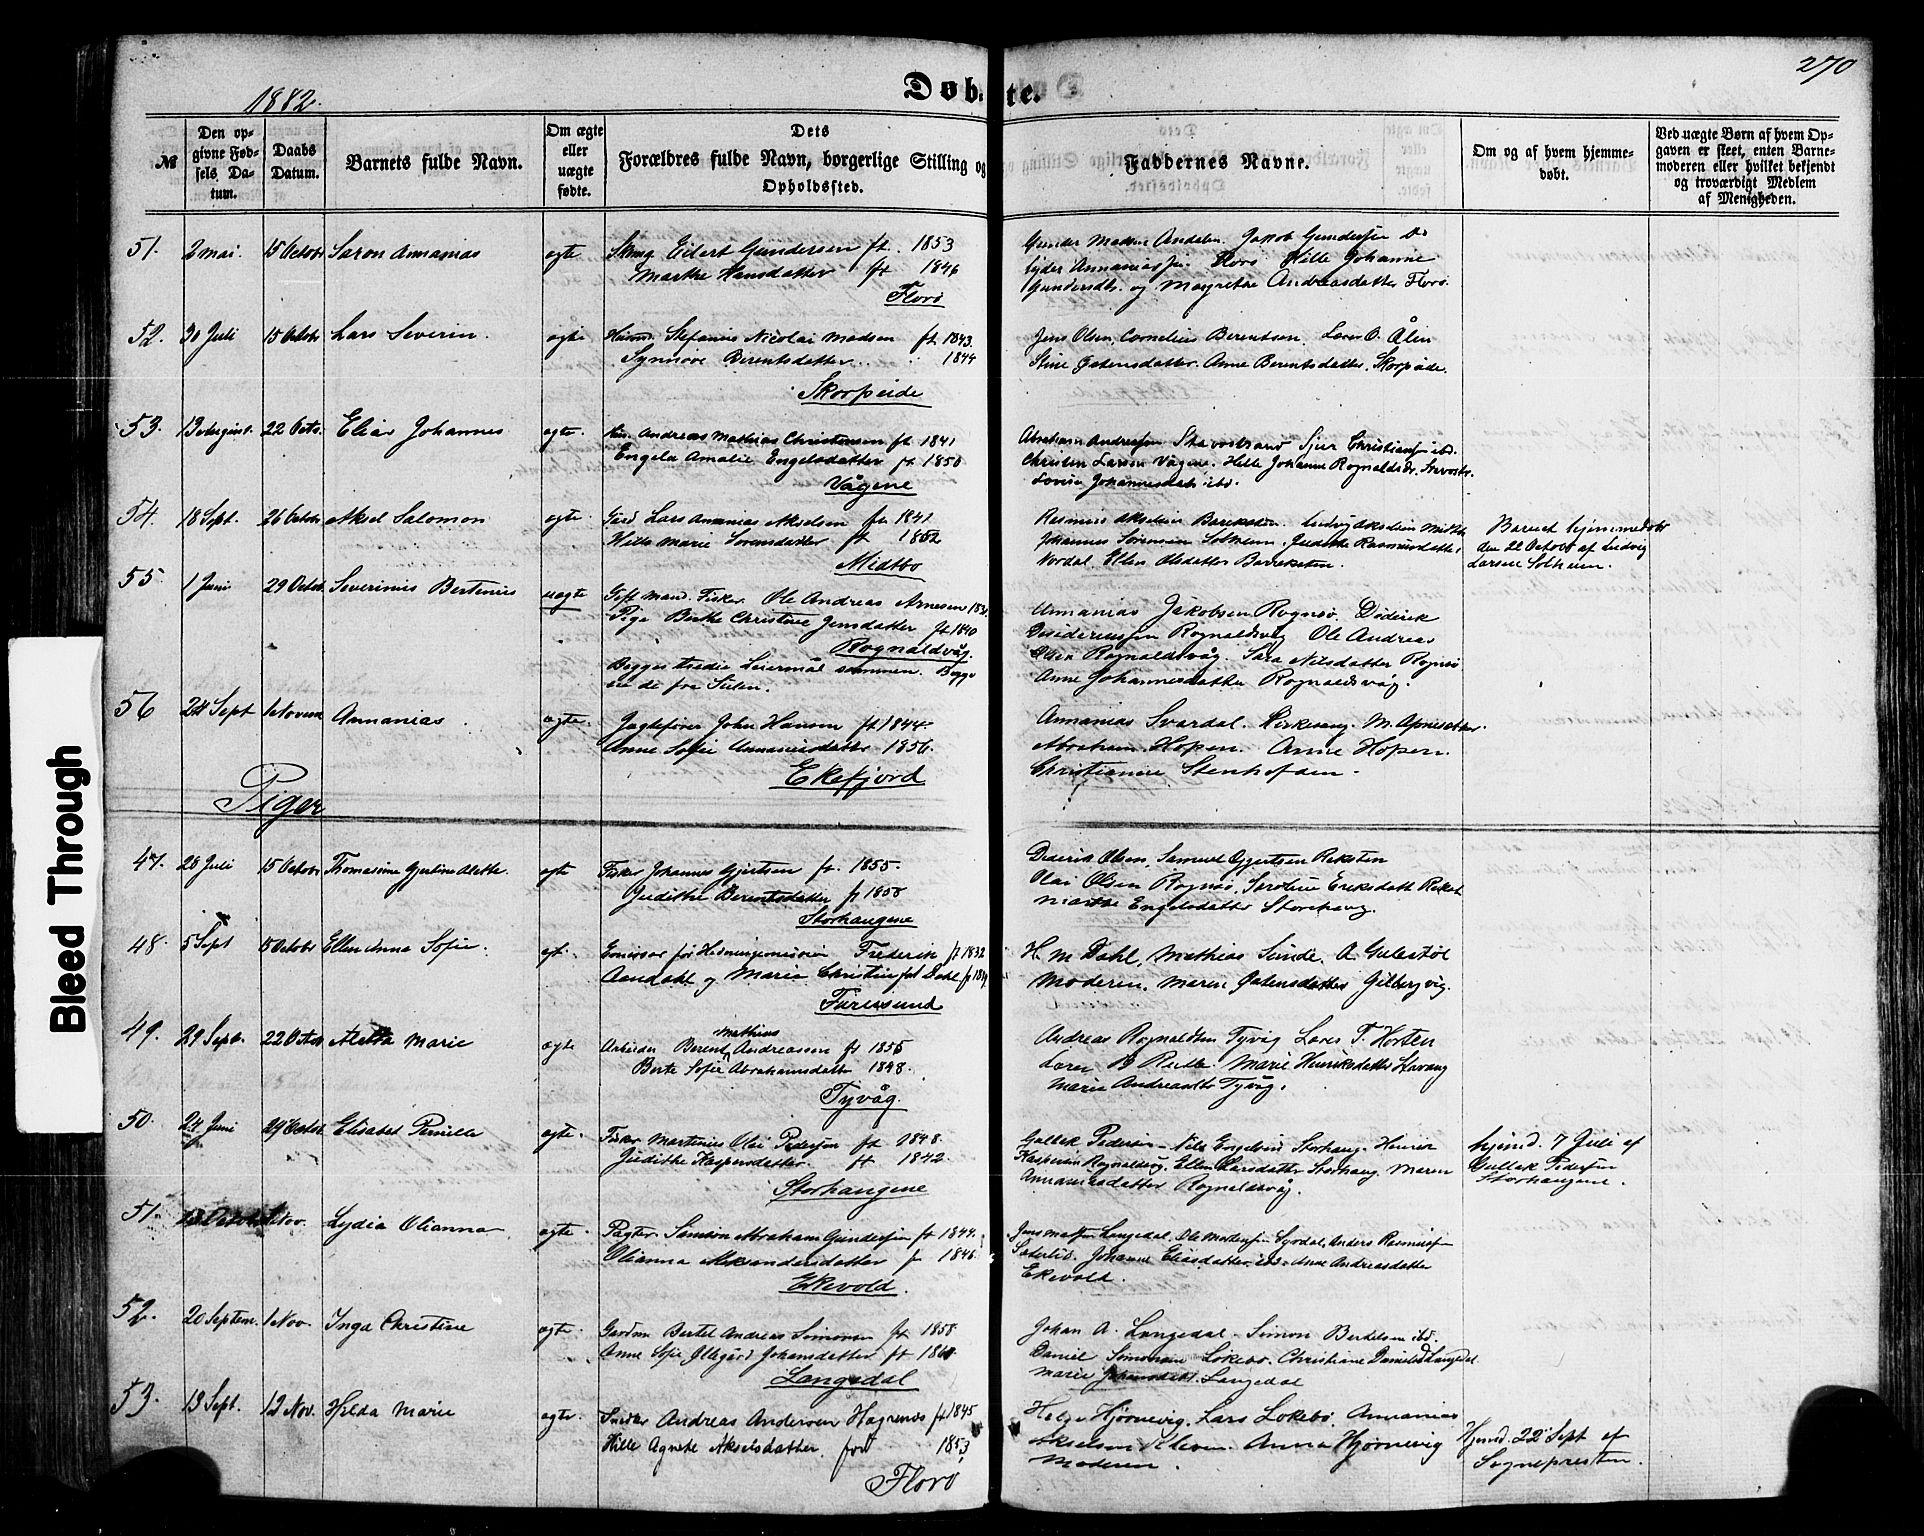 270
1882.
Døbte.
№
Den opgivne Fødsels Datum.
Daabs Datum.
Barnets fulde Navn.
Om ægte eller uægte fødte.
Dets Forældres fulde Navn, borgerlige Stilling og Opholdssted.
Faddernes Navne.
Om og af hvem hjemmedøbt.
Ved uægte Børn af hvem Opgaven er skeet, enten Barnemoderen eller hvilket bekjendt og troværdigt Medlem af Menigheden.
51. 2 Mai. 15 Octobr Saron Annanias ægte Eilert Gundersen ft. 1853
Marthe Hansdatter ft 1846
Florø
Gunder Madsen Jakob Gundersen
Annaniassen. Florø Hille Johanne
Gundersdtr. og Margrethe Andreasdatter Florø.
52. 30 Juli 15 Octobr Lars Severin. ægte Stefanus Nicolai Madsen ft 1843.
Synnøve Berentsdatter 1844
Skorpeide
Jens Olsen, Cornelius Berentsen, Lars O. Ålen
Stine Østensdatter. Anne Berentsdatter. Skorpeide.
53. 13 August. 22 Octo. Elias Johannes ægte. Andreas Mathias Christensen ft 1841
Engela Amalie Engelsdatter ft 1850
Vågene
Abraham Andersen Stavøstrand Sjur Christiansen ibd.
Christen Larsen Vågene, Helle Johanne Rognaldsdr.
Lovise Johannesdatr ibd.
54. 18 Sept. 26 Octobr Aksel Salomon ægte. Gard Lars Ananias Akselsen fr 1841
Hille Marie Sørensdatter ft 1852
Midtbø
Rasmus Akselsen Bareksten. Ludvig Akselsen Midtbø
Johannes Sørensen Solheim, Judithe Rasmusdatter
Nordal, Ellen Olsdatter Bareksten.
Barnet hjemmedøbt
den 22 Octobr af Ludvig
Larsen Solheim.
55. 1 Juni 29 Octobr Severinus Bertinius uægte Gift Mand. Fisker Ole Andreas Arnesen
Pige Berthe Christine Jensdatter ft 1840
Rognaldvåg.
Begges tredie Leiermål sammen. Begge
ere de fra
Annanias Jakobsen Rognsø. Diderik
Desideriussen Rognaldsvåg Ole Andreas
Olsen Rognaldsvåg. Sara Nilsdatter Rognsø
Anne Johannesdatter Rognaldsvåg.
56 24 Sept 1 Novem Annanias. ægte. Jagtefører John Hansen ft 1844.
Anne Sofie Annaniasdatter 1856.
Ekefjord
Annanias Svardal. M.
Abraham Hopen. Anne Hopen.
Christianne
Piger
47. 28 Juli 15 Octobr Thomasine Gjertine Alette. ægte Fisker Johannes Gjertsen ft. 1855.
Judithe Berentsdatter ft 1858
Storhaugene
Diderik Olsen, Samuel Gjertsen Reksten
Olai Olsen Rognsø, Eriksdatt Rekst
Marthe Engelsdatter Storehaug.
48. 5 Sept 15 Octobr Ellen Anna Sofie. ægt. Emissær for Hedningemissionen Frederik ft 1832
Aandahl og Marie Christine fød Dahl
Furusund
H. M Dahl, Mathias Sunde, A. Gulestøl
Moderen, Maren Østensdatter Gilbergvig.
49. 29 Sept. 22 Octob Aletta Marie ægte Arbeider Berent Mathias Andreassen ft 1856
Berte Sofie Abrahamsdatter 1848.
Tyvåg.
Andreas Rognaldsen Tyvåg Lars T. Horten
Maria Henriksdatter Stavang
Maria Andreasdtr Tyvåg.
50. 24 Juni 29 Octob Elisabet Pernille ægte. Fisker Martinus Olai Pedersen ft 1848.
Judithe Kaspersdatter ft 1842.
Storhaugene
Gullak Pedersen, Nils Engelsen Storhaug, Henrik
Kaspersen Rognaldsvåg, Ellen Larsdatter Storhaug, Maren
Annaniasdatter Rognaldsvåg.
hjemd. 7 Juli af
Gullak Pedersen
Storhaugene.
51. Octob 1 Nov. Lydia Olianna ægte. Pagter Samson Abraham Gundersen ft 1844.
Olianna Aleksandersdatter fr 1846.
Ekevold.
Jens Madsen Langedal, Ole Mortensen Anders Rasmussen
Johanne Eliasdatter ibd. Anne Andreasdatter
Ekevold.
52. 20 Septem. 1 Nov. Inga Christine ægte. Gardm Bertel Andreas Simonsen ft 1858.
Anne Sofie Johansdatter ft
Langedal
Johan A. Langedal. Simon Bertelsen ibd.
Daniel Simonsen Løkebø. Christiane Langedal
Marie Johansdatt. Langedal
53. 13 Sept. 12 Nov. Hilda Marie ægte. Snedker Andreas Andersen Hagenæs ft 1845
Hille Agnete Akselsdatter. født 1853
Florø
Helge Hjørnevig, Lars Løkebø, Annanias
Akselsen Anna Hjørnevig
Moderen.
Hjemd. 22 Sept af
Sognepresten.
Bleed Through